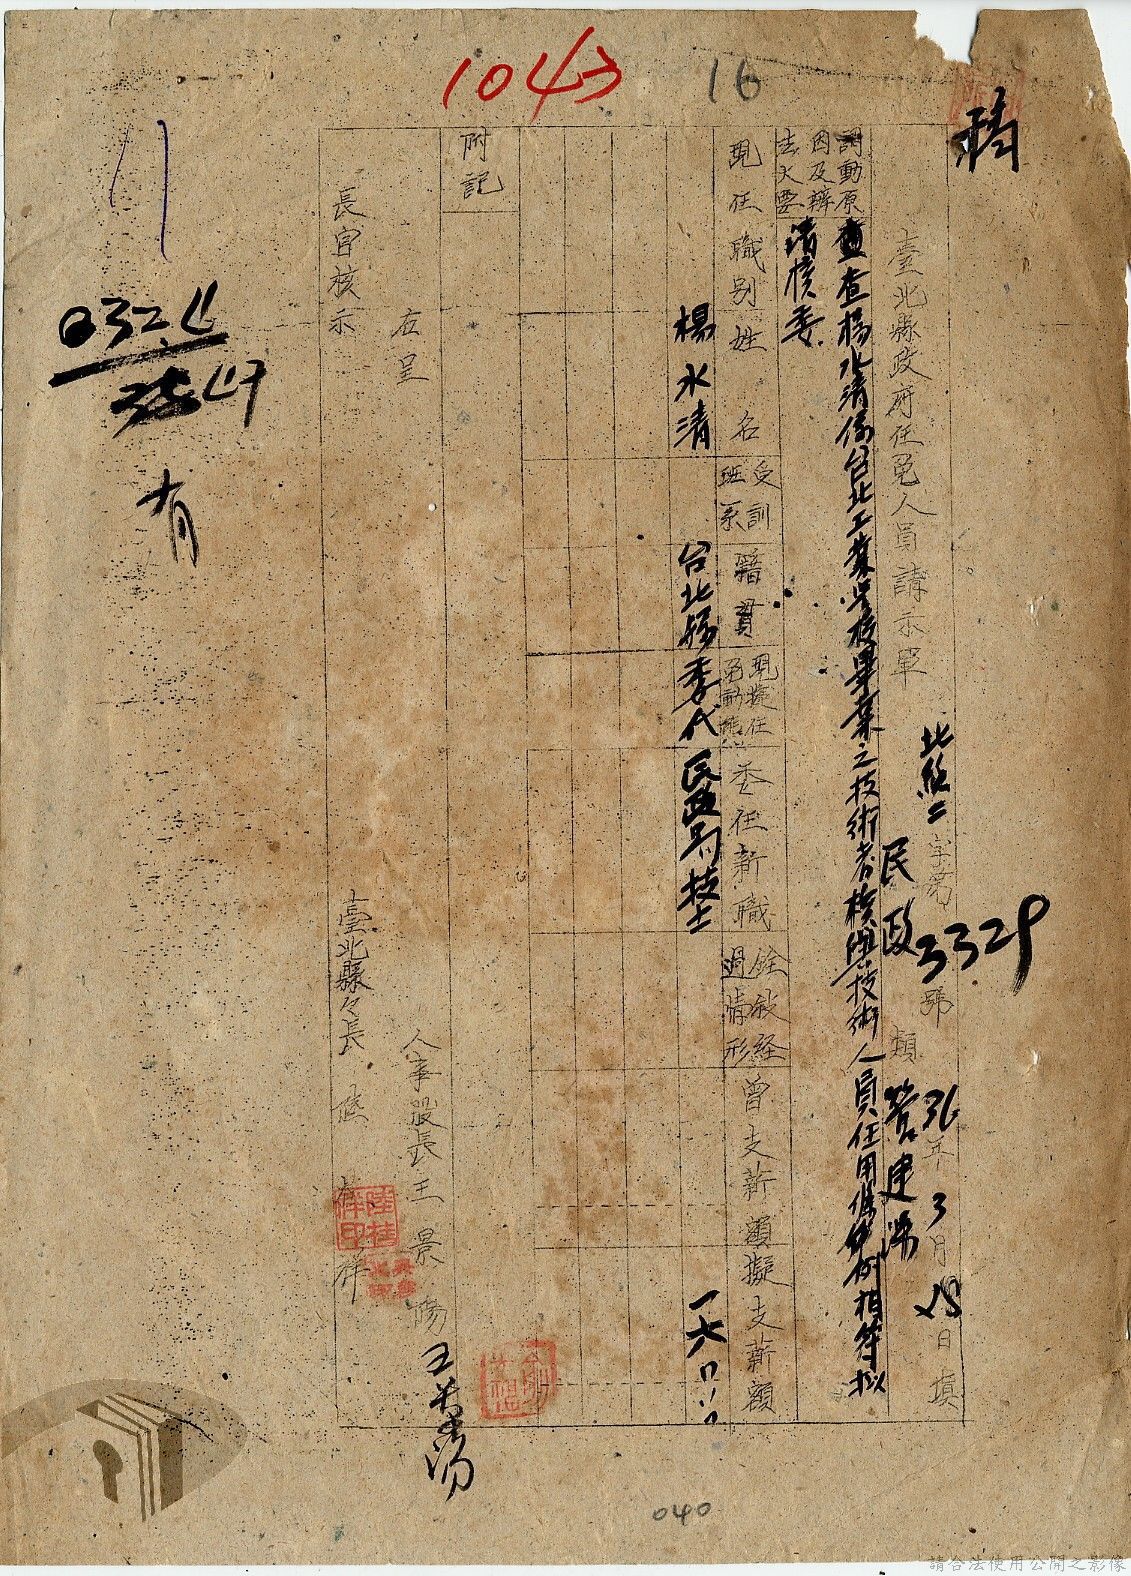 1043
16
稿
臺北縣政府任免人員請示單
北總二字第3329號
民政類營建
36年3月18日填
調動原因及辦法大要
查楊水清係台北工業學校畢業之技術者核與技術人員任用條例相符擬
請核委
現任職別
姓名
受訓班系
籍貫
現擬任
委任新職
銓敘經過情形
曾支薪額
擬支薪額
楊水清
台北縣
委代民政局技士
一六〇
附記
右呈
長官核示
人事股長王景陽
王景陽
臺北縣々長陸桂祥
陸桂祥印
有
040
請合法使用公開之影像